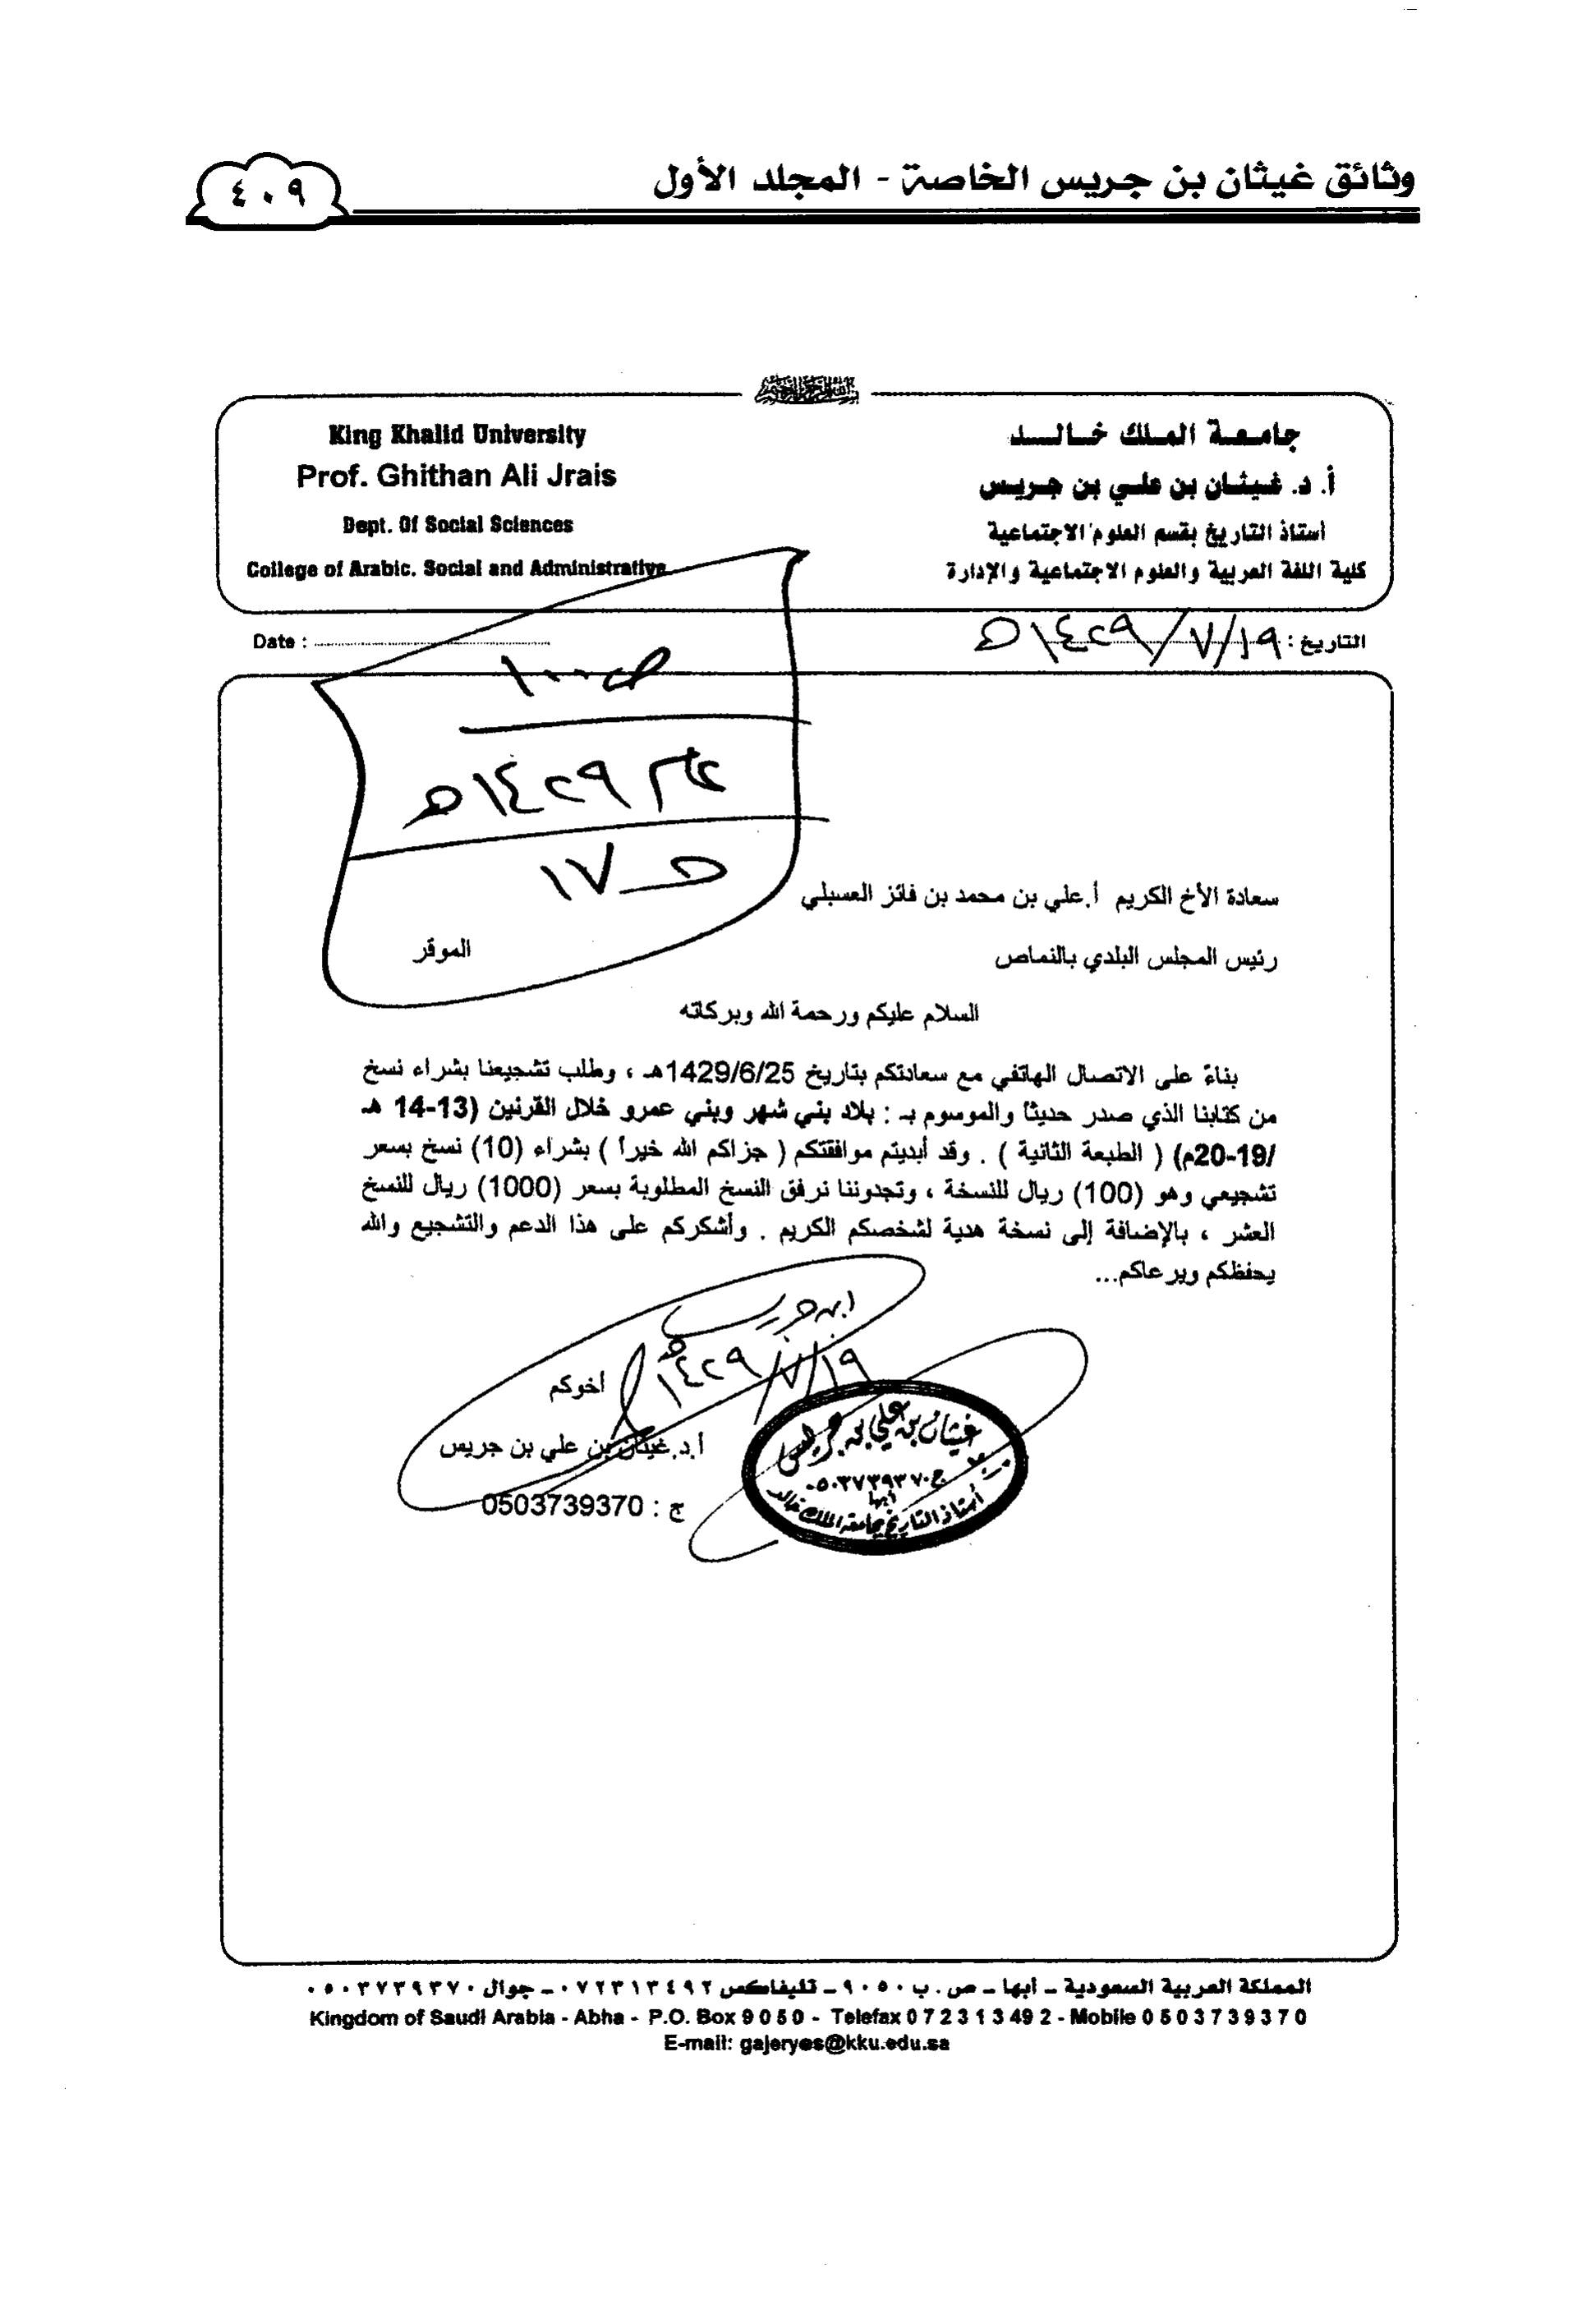 وثائق غيثان بن جريس الخاصة - المجلد الأول
٤٠٩
بسم الله الرحمن الرحيم
جامعة الملك خالد
أ. د. غيثان بن علي بن جريس
أستاذ التاريخ بقسم العلوم الاجتماعية
كلية اللغة العربية والعلوم الاجتماعية والإدارة
King Khalid University
Prof. Ghithan Ali Jrais
Dept. Of Social Sciences
College of Arabic. Social and Administrative
التاريخ : ١٤٢٩/٧/١٩هـ
Date :
ص ١٠٠
١٤٢٩هـ
١٧
سعادة الأخ الكريم أ.علي بن محمد بن فائز العسبلي
رئيس المجلس البلدي بالنماص الموقر
السلام عليكم ورحمة الله وبركاته
بناءً على الاتصال الهاتفي مع سعادتكم بتاريخ 1429/6/25هـ ، وطلب تشجيعنا بشراء نسخ
من كتابنا الذي صدر حديثاً والموسوم بـ : بلاد بني شهر وبني عمرو خلال القرنين (13-14 هـ
/19-20م) ( الطبعة الثانية ) . وقد أبديتم موافقتكم ( جزاكم الله خيراً ) بشراء (10) نسخ بسعر
تشجيعي وهو (100) ريال للنسخة ، وتجدوننا نرفق النسخ المطلوبة بسعر (1000) ريال للنسخ
العشر ، بالإضافة إلى نسخة هدية لشخصكم الكريم . وأشكركم على هذا الدعم والتشجيع والله
يحفظكم ويرعاكم...
ابن جريس
١٤٢٩/٧/١٩هـ
أخوكم
أ.د.غيثان بن علي بن جريس
ج : 0503739370
غيثان بن علي بن جريس
ج٠٥٠٣٧٣٩٣٧٠
أبها
أستاذ التاريخ بجامعة الملك خالد
المملكة العربية السعودية - أبها - ص . ب ٩٠٥٠ - تليفاكس ٠٧٢٣١٣٤٩٢ - جوال ٠٥٠٣٧٣٩٣٧٠
Kingdom of Saudi Arabia - Abha - P.O. Box 9 0 5 0 - Telefax 0 7 2 3 1 3 49 2 - Mobile 0 5 0 3 7 3 9 3 7 0
E-mail: gajeryes@kku.edu.sa